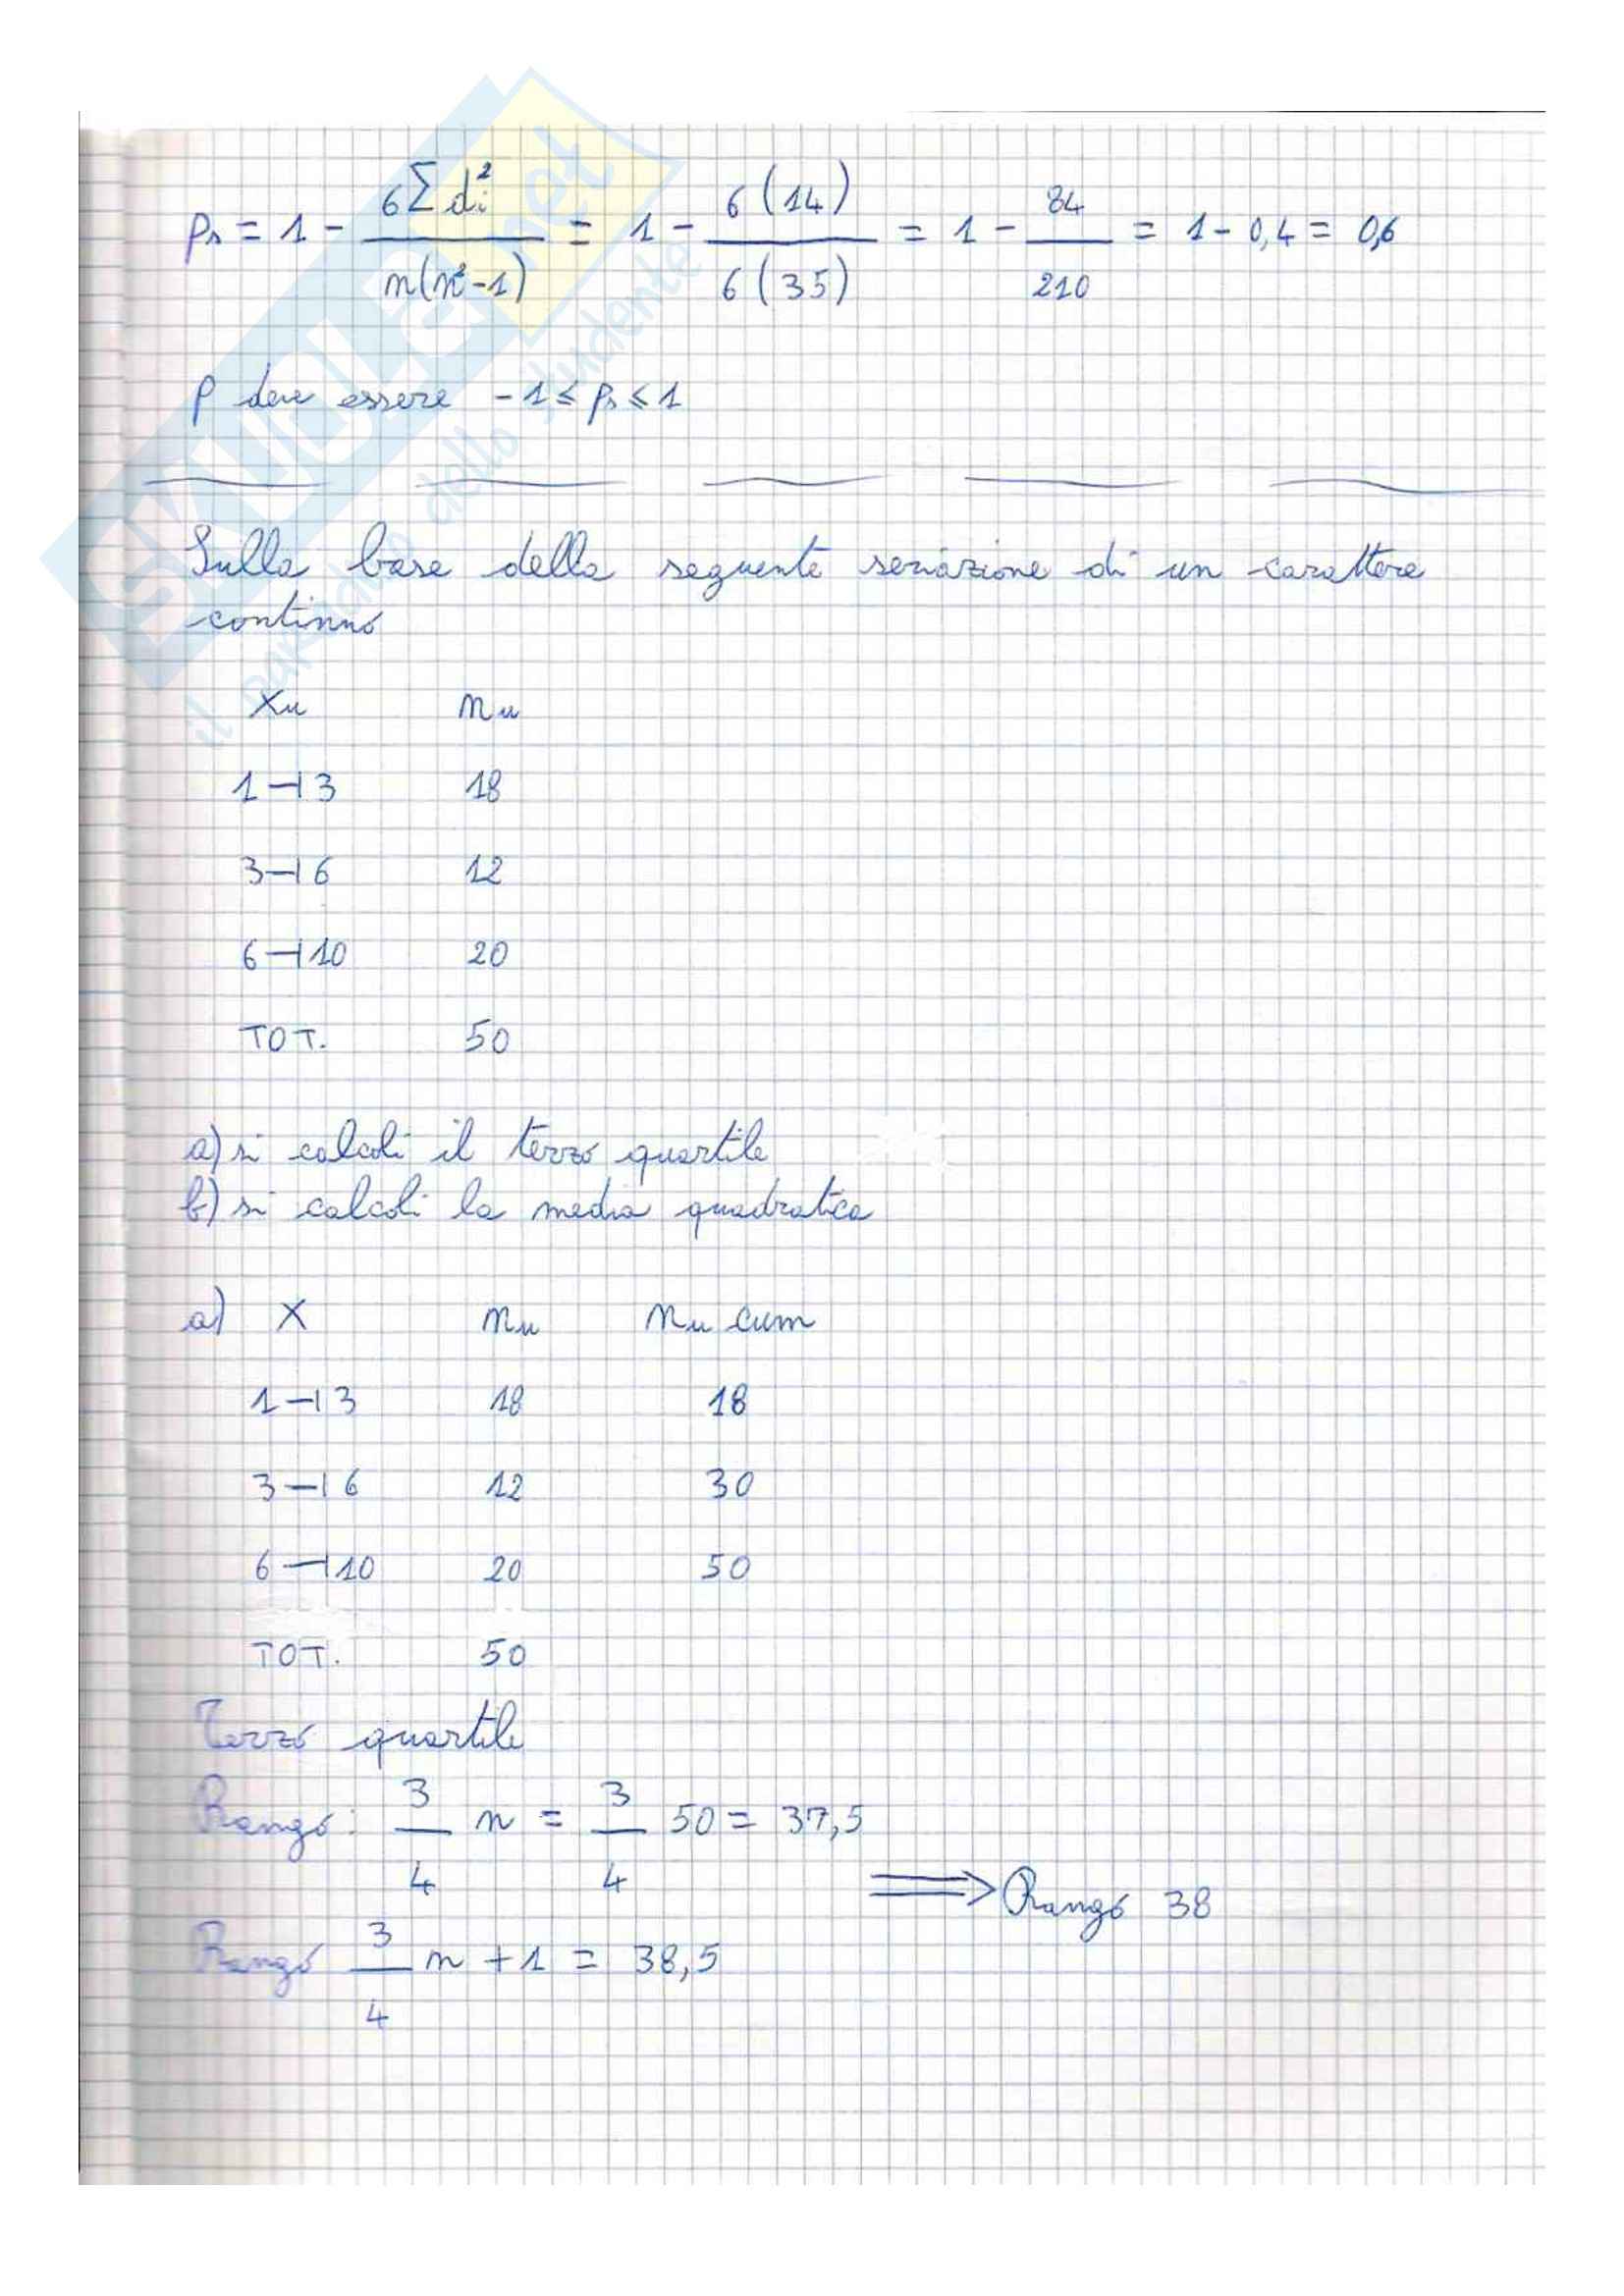 ρs = 1 - 6∑di² / n(n²-1) = 1 - 6(14) / 6(35) = 1 - 84 / 210 = 1 - 0,4 = 0,6
ρ deve essere -1 ≤ ρs ≤ 1
Sulla base della seguente seriazione di un carattere
continuo
Xu nu
1⊣3 18
3⊣6 12
6⊣10 20
TOT. 50
a) si calcoli il terzo quartile
b) si calcoli la media quadratica
a) X nu nu cum
1⊣3 18 18
3⊣6 12 30
6⊣10 20 50
TOT. 50
Terzo quartile
Rango: 3/4 n = 3/4 50 = 37,5
⟹ Rango 38
Rango 3/4 n + 1 = 38,5
SKUOLA.net
il paradiso dello studente